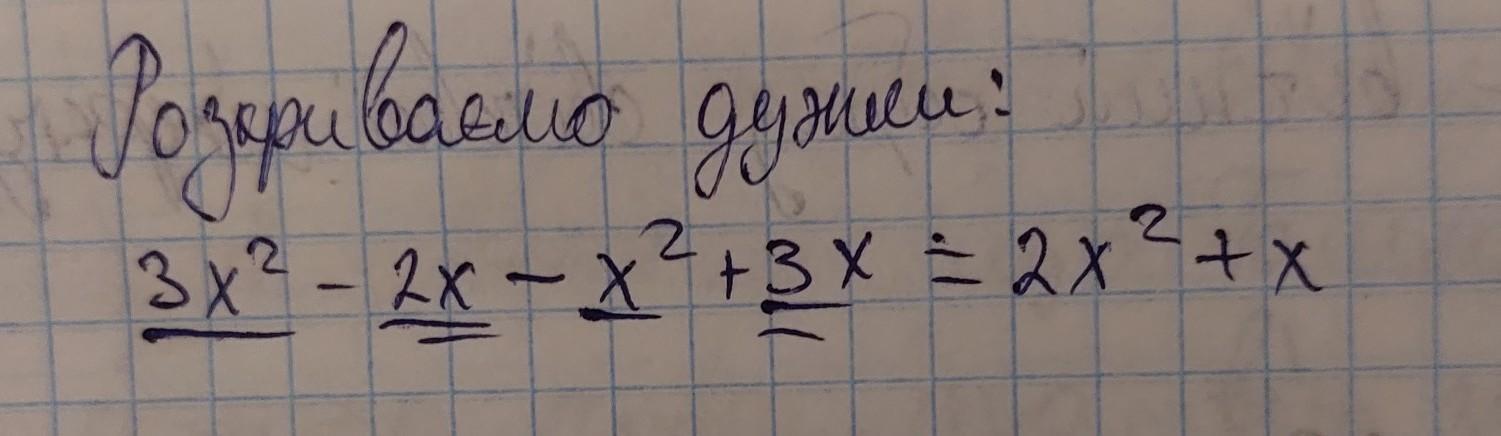 Розкриваємо дужки:
3x² - 2x - x² + 3x = 2x² + x